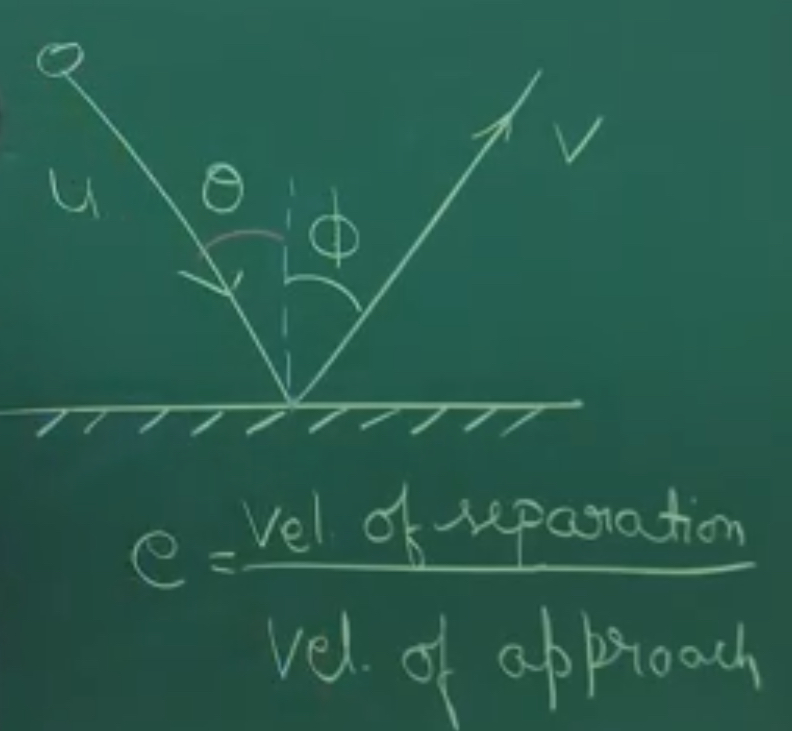 u θ ϕ v
e = Vel. of separation
Vel. of approach